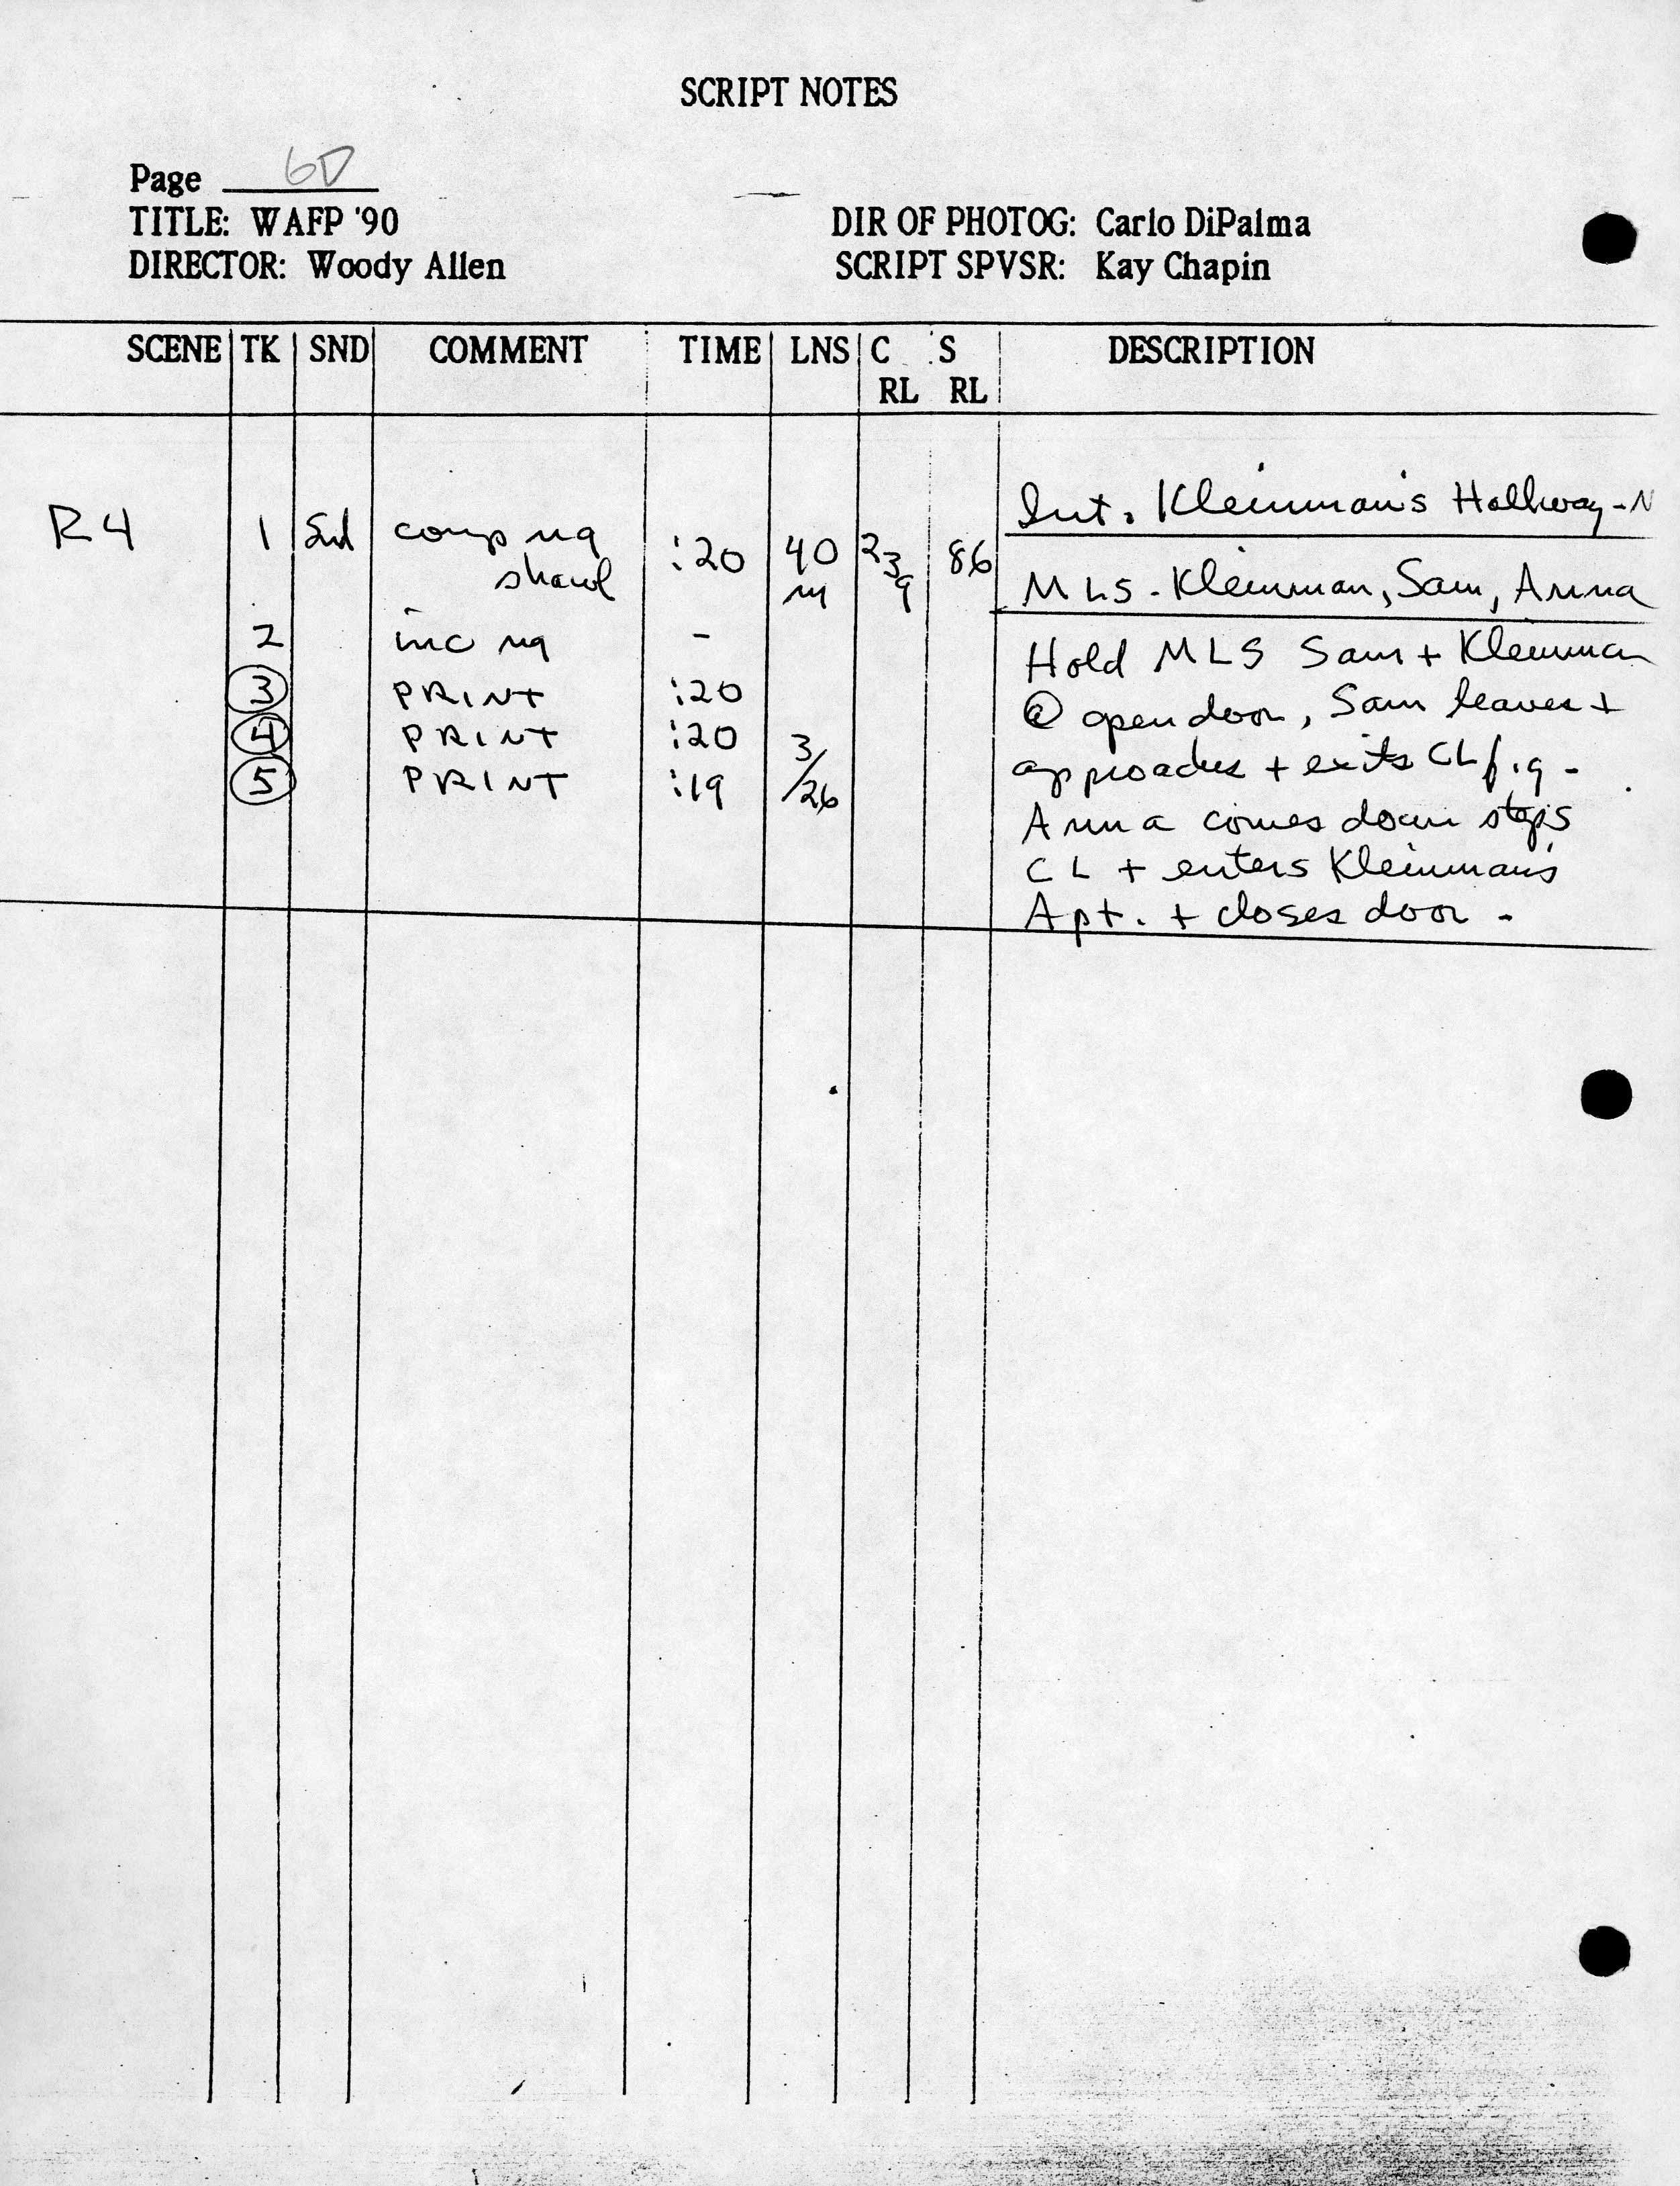 SCRIPT NOTES
Page 6D
TITLE: WAFP '90
DIR OF PHOTOG: Carlo DiPalma
DIRECTOR: Woody Allen
SCRIPT SPVSR: Kay Chapin
SCENE TK SND COMMENT TIME LNS C S DESCRIPTION
RL RL
Int. Kleinman's Hallway - N
R4 1 Snd comp ng :20 40 239 86
shawl m MLS - Kleinman, Sam, Anna
2 inc ng - Hold MLS Sam + Kleinman
3 PRINT :20 @ open door, Sam leaves +
4 PRINT :20 approaches + exits CL f.g -
5 PRINT :19 3/26
Anna comes down steps
CL + enters Kleinman's
Apt. + closes door -